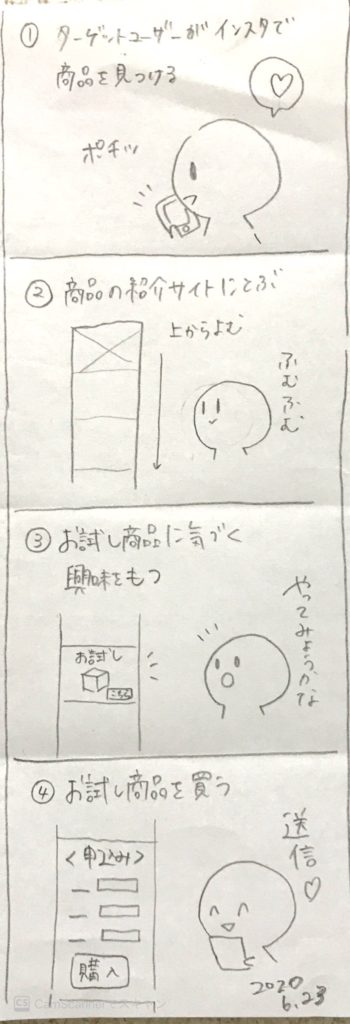 ① ターゲットユーザーがインスタで
商品を見つける
ポチッ
② 商品の紹介サイトにとぶ
上からよむ
ふむふむ
③ お試し商品に気づく
興味をもつ
お試し
こちら
やってみようかな
④ お試し商品を買う
<申込み>
購入
送信♡
2020
6.23
CS CamScannerでスキャン